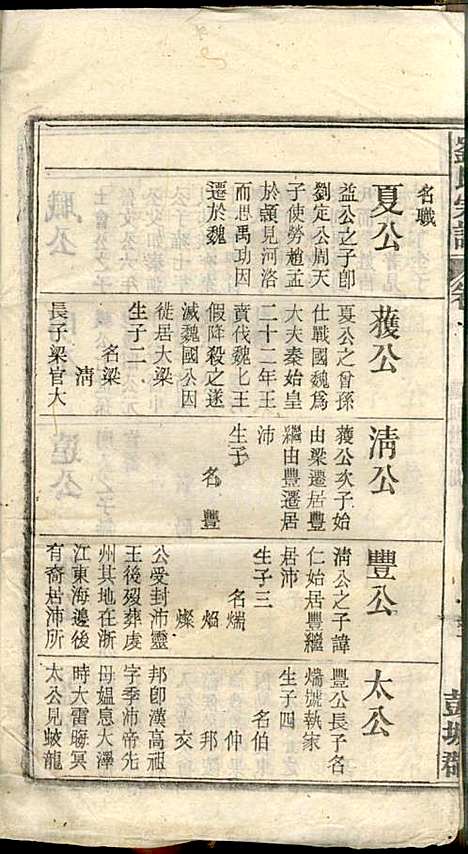 劉氏宗譜
彭城郡
名職
夏公
益公之子卽
劉定公周天
子使勞趙孟
於頴見河洛
而思禹功因
遷於魏
蒦公
夏公之曾孫
仕戰國魏爲
大夫秦始皇
二十二年王
賁伐魏虜王
假降殺之遂
滅魏國公因
徙居大梁
生子二
名梁
淸
長子梁官大
淸公
蒦公次子始
由梁遷居豐
繼由豐遷居
沛
生子
名豐
豐公
淸公之子諱
仁始居豐繼
居沛
生子三
名煓
焰
燦
公受封沛靈
王後歿葬虔
州其地在浙
江東海邊後
有裔居沛所
太公
豐公長子名
煓號執家
生子四
名伯
仲
邦
交
邦卽漢高祖
字季沛帝先
母媪息大澤
時大雷晦冥
太公見蛟龍